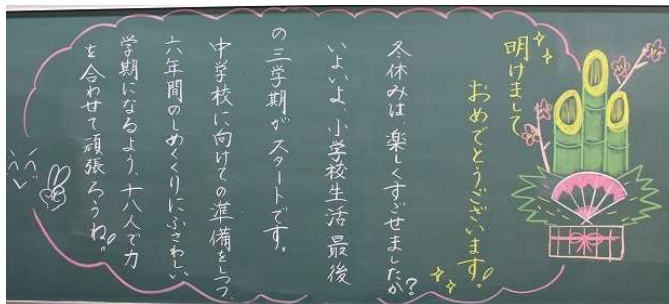 明けまして
おめでとうございます!
冬休みは、楽しくすごせましたか?
いよいよ、小学校生活 最後
の三学期がスタートです。
中学校に向けての準備をしつつ、
六年間のしめくくりにふさわしい
学期になるよう、十八人で力
を合わせて頑張ろうね!